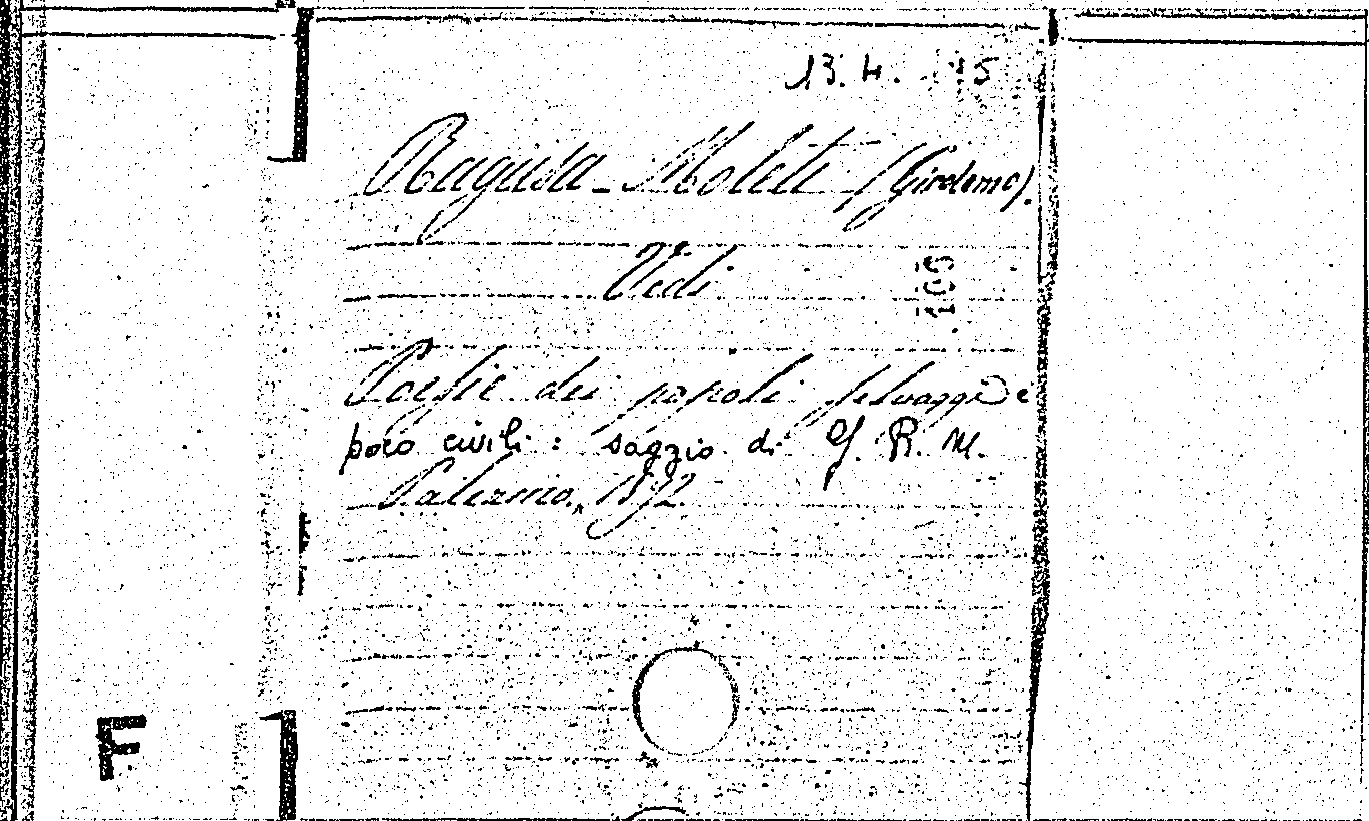 13. 4. 15
Ragusa-Moleti (Girolamo).
Vedi
105
Poesie dei popoli selvaggi e
poco civili: saggio di G. R. M.
Palermo, 1892.
F